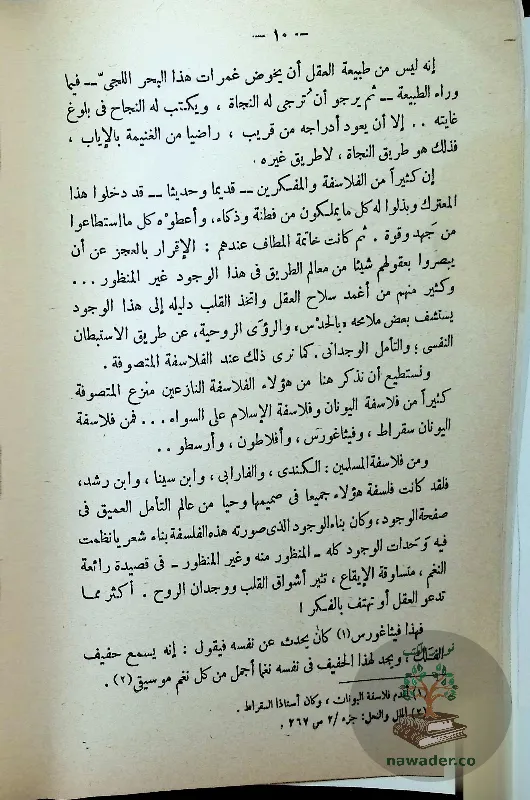 — ١٠ —
إنه ليس من طبيعة العقل أن يخوض غمرات هذا البحر اللجىّ — فيما
وراء الطبيعة — ثم يرجو أن تُرجى له النجاة ، ويكتب له النجاح فى بلوغ
غايته .. إلا أن يعود أدراجه من قريب ، راضيا من الغنيمة بالإياب ،
فذلك هو طريق النجاة ، لاطريق غيره .
إن كثيراً من الفلاسفة والمفكرين — قديما وحديثا — قد دخلوا هذا
المعترك وبذلوا له كل مايملكون من فطنة وذكاء، وأعطوْه كل مااستطاعوا
من جَهد وقوة . ثم كانت خاتمة المطاف عندهم : الإقرار بالعجز عن أن
يبصروا بعقولهم شيئا من معالم الطريق فى هذا الوجود غير المنظور ...
وكثير منهم من أغمد سلاح العقل واتخذ القلب دليله إلى هذا الوجود
يستشف بعض ملامحه ، بالحدْس، والرؤى الروحية، عن طريق الاستبطان
النفسى ؛ والتأمل الوجدانى . كما نرى ذلك عند الفلاسفة المتصوفة .
ونستطيع أن نذكر هنا من هؤلاء الفلاسفة النازعين منزع المتصوفة
كثيراً من فلاسفة اليونان وفلاسفة الإسلام على السواء ... فمن فلاسفة
اليونان سقراط ، وفيثاغورس ، وأفلاطون ، وأرسطو ..
ومن فلاسفة المسلمين : الكندى ، والفارابى ، وابن سينا ، وابن رشد،
فلقد كانت فلسفة هؤلاء جميعا فى صميمها وحيا من عالم التأمل العميق فى
صفحة الوجود، وكان بناء الوجود الذى صورته هذه الفلسفة بناء شعريا نظمت
فيه وَحدات الوجود كله – المنظور منه وغير المنظور – فى قصيدة رائعة
النغم ، متساوقة الإيقاع ، تثير أشواق القلب ووجدان الروح . أكثر مما
تدعو العقل أو تهتف بالفكر !
فهذا فيثاغورس (١) كان يحدث عن نفسه فيقول : إنه يسمع حفيف
الفلك : ويجد لهذا الحفيف فى نفسه نغما أجمل من كل نغم موسيقى (٢) .
(١) أقدم فلاسفة اليونان ، وكان أستاذا لسقراط .
(٢) الملل والنحل: جزء /٢ ص ٢٦٧ .
nawader.co